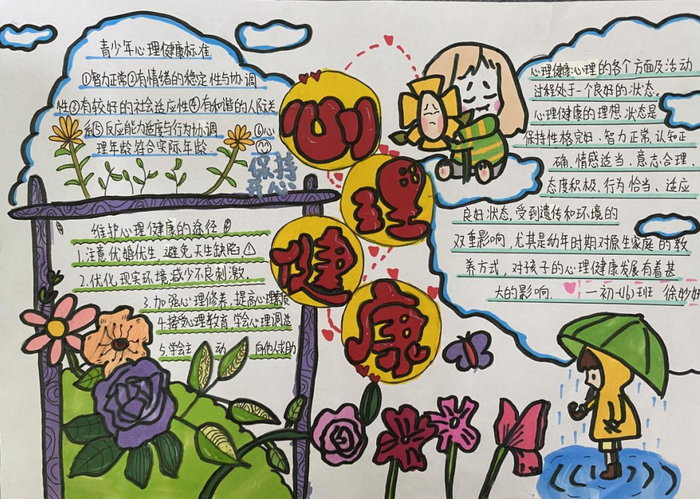 青少年心理健康标准
①智力正常②有情绪的稳定性与协调
性③有较好的社会适应性④有和谐的人际关
系⑤反应能力适度与行为协调
⑥心
理年龄符合实际年龄
保持
开心
心
理
健
康
维护心理健康的途径
1.注意优婚优生 避免天生缺陷
2.优化现实环境减少不良刺激
3.加强心理修养,提高心理素质
4.接受心理教育,学会心理调适
5.学会主动向他人求助
心理健康:心理的各个方面及活动
过程处于一个良好的状态.
心理健康的理想状态是
保持性格完好、智力正常、认知正
确、情感适当、意志合理
态度积极、行为恰当、适应
良好状态,受到遗传和环境的
双重影响,尤其是幼年时期对原生家庭的教
养方式,对孩子的心理健康发展有着甚
大的影响.
一初一(16)班 徐